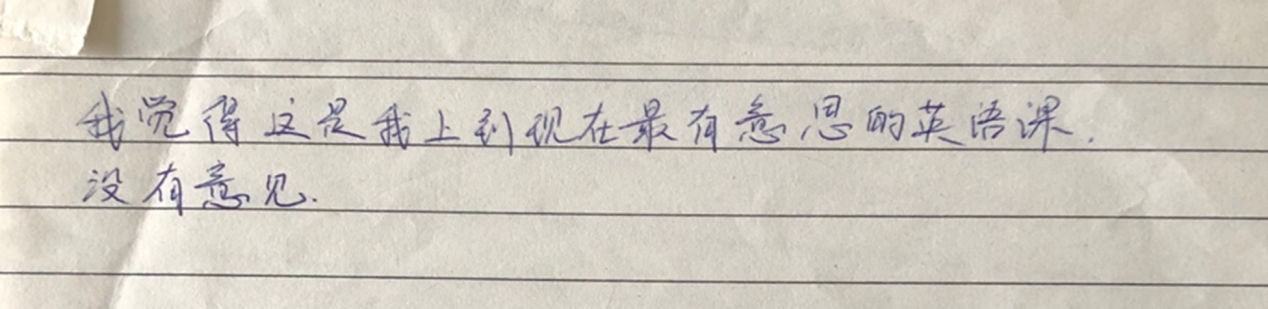 我觉得这是我上到现在最有意思的英语课.
没有意见.